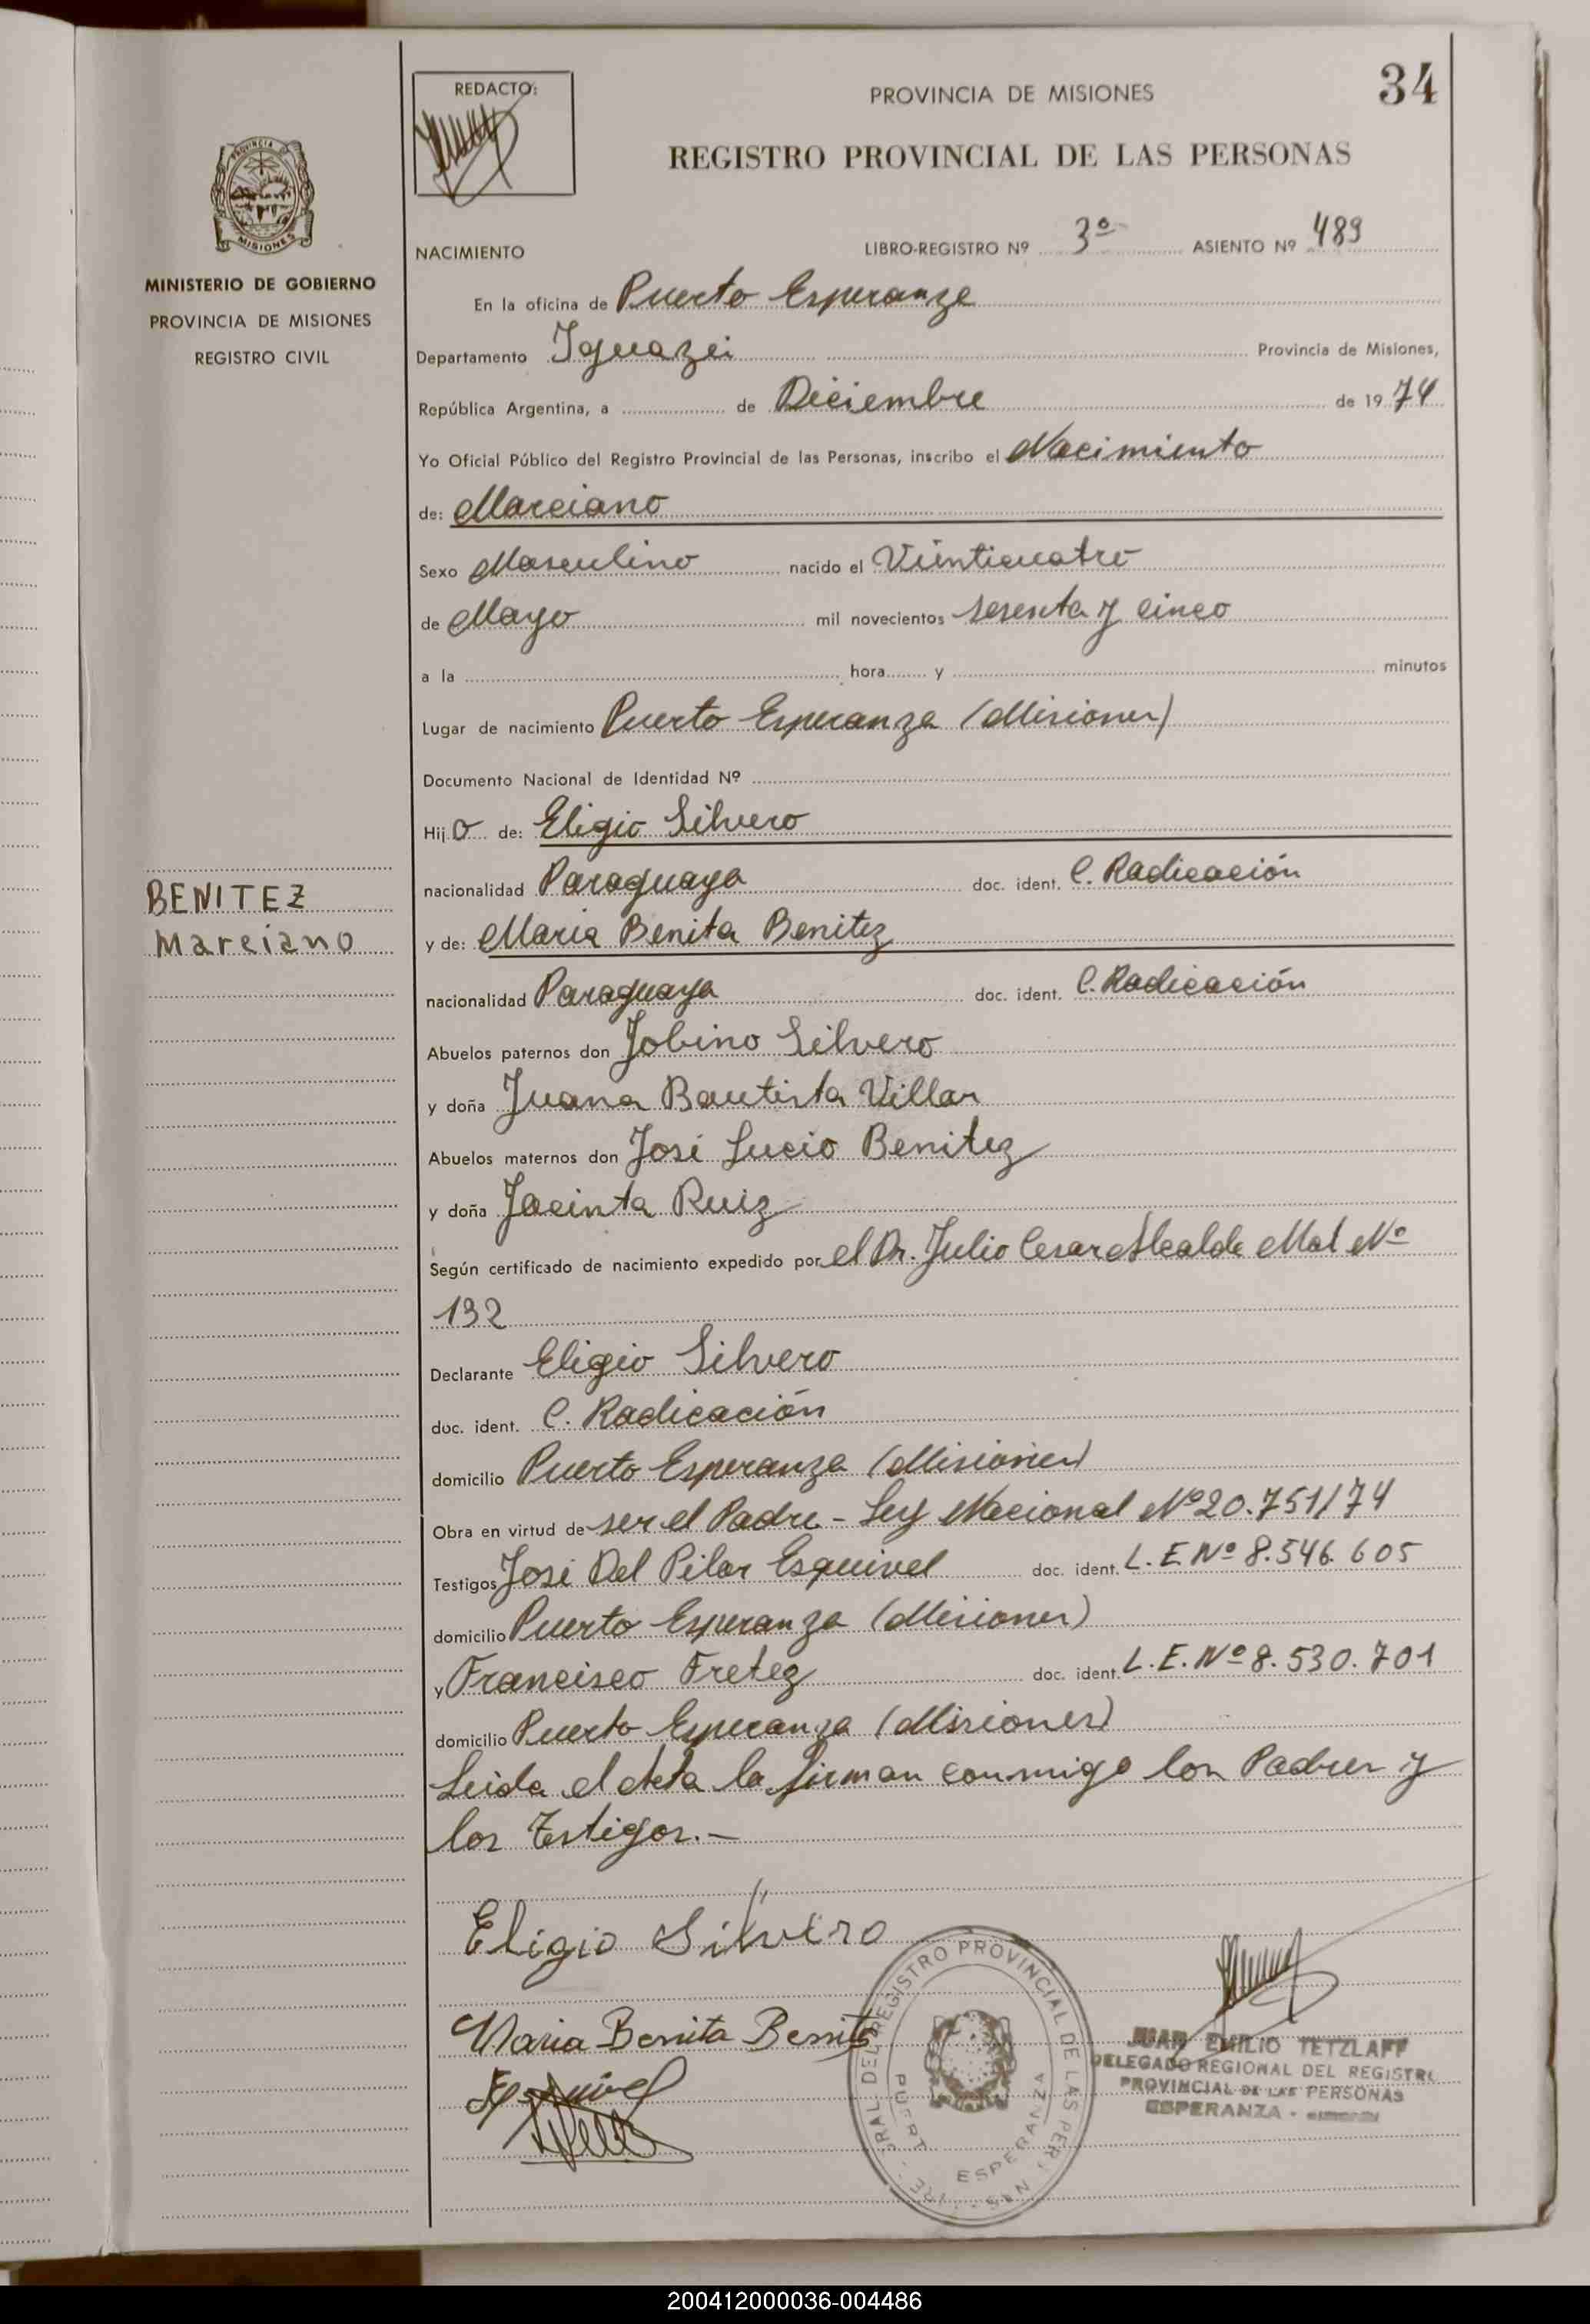 34
REDACTO:
PROVINCIA DE MISIONES
REGISTRO PROVINCIAL DE LAS PERSONAS
PROVINCIA
MISIONES
MINISTERIO DE GOBIERNO
PROVINCIA DE MISIONES
REGISTRO CIVIL
NACIMIENTO LIBRO-REGISTRO Nº 3º ASIENTO Nº 489
En la oficina de Puerto Esperanza
Departamento Iguazú Provincia de Misiones,
República Argentina, a de Diciembre de 1974
Yo Oficial Público del Registro Provincial de las Personas, inscribo el Nacimiento
de: Marciano
Sexo Masculino nacido el Vientiquatro
de Mayo mil novecientos sesenta y cinco
a la hora y minutos
Lugar de nacimiento Puerto Esperanza (Misiones)
Documento Nacional de Identidad Nº
Hijo de: Eligio Silvero
BENITEZ
Marciano
nacionalidad Paraguaya doc. ident. C. Radicación
y de: Maria Benita Benitez
nacionalidad Paraguaya doc. ident. C. Radicación
Abuelos paternos don Jobino Silvero
y doña Juana Bautista Villar
Abuelos maternos don José Lucio Benitez
y doña Jacinta Ruiz
Según certificado de nacimiento expedido por el Dr. Julio Cesar Alcalde Mat Nº
132
Declarante Eligio Silvero
doc. ident. C. Radicación
domicilio Puerto Esperanza (Misiones)
Obra en virtud de ser el Padre - Ley Nacional Nº 20.751/74
Testigos José Del Pilar Esquivel doc. ident. L. E Nº 8.546.605
domicilio Puerto Esperanza (Misiones)
y Francisco Fretez doc. ident. L. E. Nº 8.530.701
domicilio Puerto Esperanza (Misiones)
Leida el Acta la firman conmigo los Padres y
los Testigos.-
Eligio Silvero
Maria Benita Benitez
Esquivel
REGISTRO PROVINCIAL DE LAS PERSONAS
PUERTO ESPERANZA
JUAN EMILIO TETZLAFF
DELEGADO REGIONAL DEL REGISTRO
PROVINCIAL DE LAS PERSONAS
ESPERANZA -
200412000036-004486